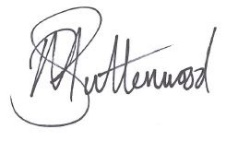 M Buttenwood